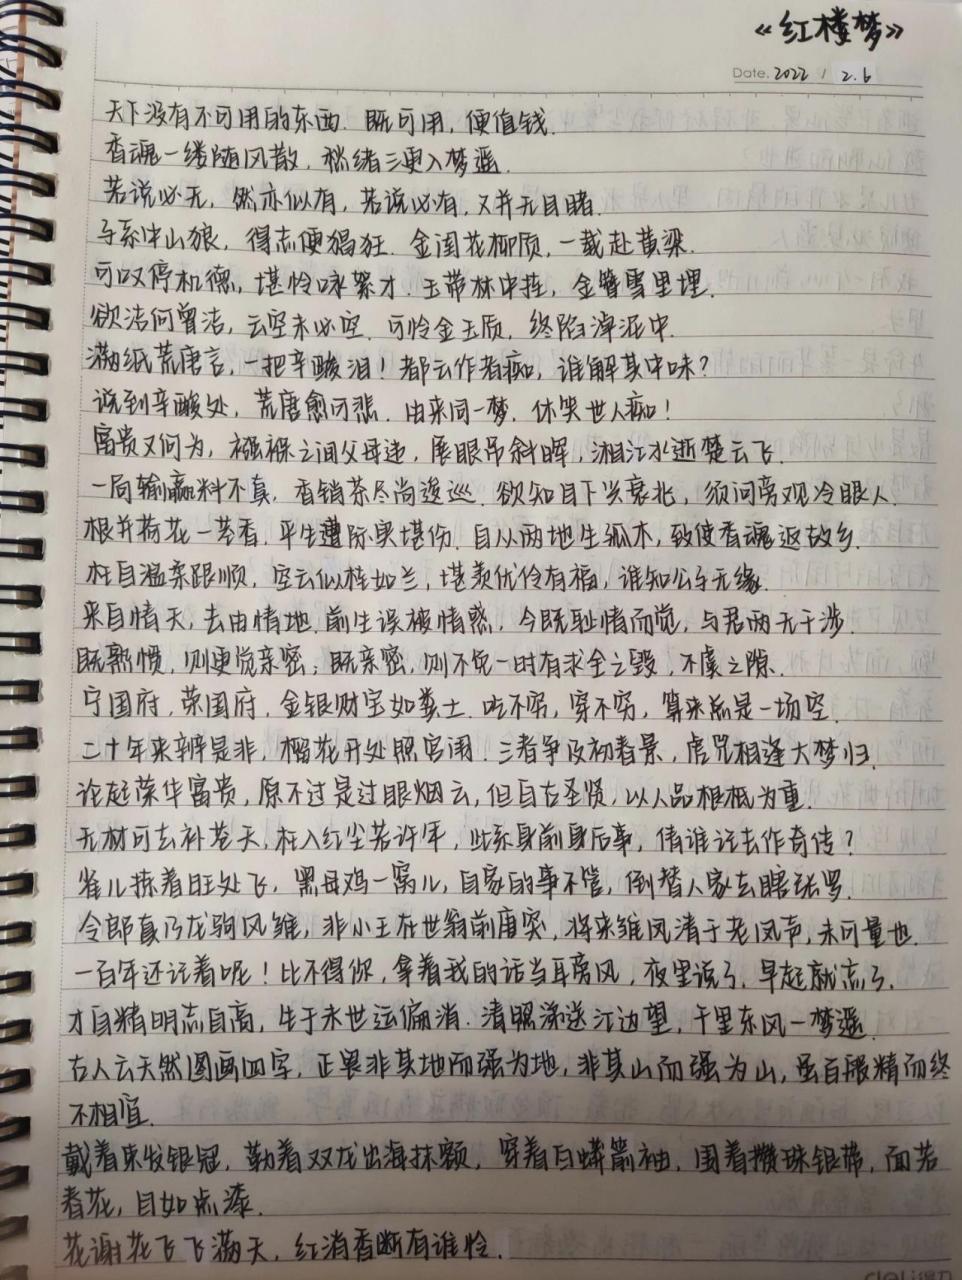 《红楼梦》
Date. 2022 / 2.6
天下没有不可用的东西. 既可用, 便值钱.
香魂一缕随风散, 愁绪三更入梦遥.
若说必无, 然亦似有, 若说必有, 又并无目睹.
子系中山狼, 得志便猖狂. 金闺花柳质, 一载赴黄粱.
可叹停机德, 堪怜咏絮才. 玉带林中挂, 金簪雪里埋.
欲洁何曾洁, 云空未必空. 可怜金玉质, 终陷淖泥中.
满纸荒唐言, 一把辛酸泪! 都云作者痴, 谁解其中味?
说到辛酸处, 荒唐愈可悲. 由来同一梦, 休笑世人痴!
富贵又何为, 襁褓之间父母违, 展眼吊斜晖, 湘江水逝楚云飞.
一局输赢料不真, 香销茶尽尚逡巡. 欲知目下兴衰兆, 须问旁观冷眼人.
根并荷花一茎香, 平生遭际实堪伤. 自从两地生孤木, 致使香魂返故乡.
枉自温亲跟顺, 空云似桂如兰, 堪羡优伶有福, 谁知公子无缘.
来自情天, 去由情地. 前生误被情惑, 今既耻情而觉, 与君两无干涉.
既熟惯, 则更觉亲密; 既亲密, 则不免一时有求全之毁, 不虞之隙.
宁国府, 荣国府, 金银财宝如粪土. 吃不穷, 穿不穷, 算来总是一场空.
二十年来辨是非, 榴花开处照宫闱. 三春争及初春景, 虎兕相逢大梦归.
论起荣华富贵, 原不过是过眼烟云, 但自古圣贤, 以人品根柢为重.
无材可去补苍天, 枉入红尘若许年, 此系身前身后事, 倩谁记去作奇传?
雀儿拣着旺处飞, 黑母鸡一窝儿, 自家的事不管, 倒替人家去瞎张罗.
令郎真乃龙驹凤雏, 非小王在世翁前唐突, 将来雏凤清于老凤声, 未可量也.
一百年还记着呢! 比不得你, 拿着我的话当耳旁风, 夜里说了, 早起就忘了.
才自精明志自高, 生于末世运偏消. 清明涕送江边望, 千里东风一梦遥.
古人云天然图画四字, 正畏非其地而强为地, 非其山而强为山, 虽百般精而终
不相宜.
戴着束发银冠, 勒着双龙出海抹额, 穿着白蟒箭袖, 围着攒珠银带, 面若
春花, 目如点漆.
花谢花飞飞满天, 红消香断有谁怜.